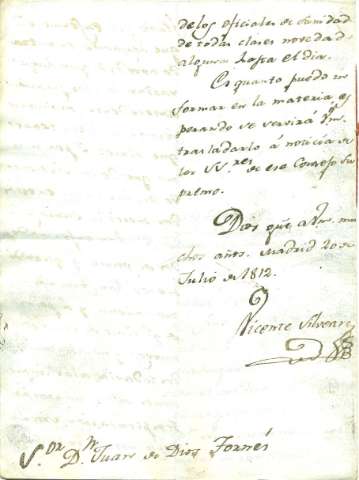 de los oficiales de Sanidad
de todas clases novedad
alguna hasta el dia.
Es quanto puedo in
formar en la materia es
perando se servirá Vm.
trasladarlo á noticia de
los SS.res de ese Consejo Su
premo.
Dios gũe a Vm. mu
chos años. Madrid 20 de
Julio de 1812.
Vicente
S.or D.n Juan de Dios Fornés